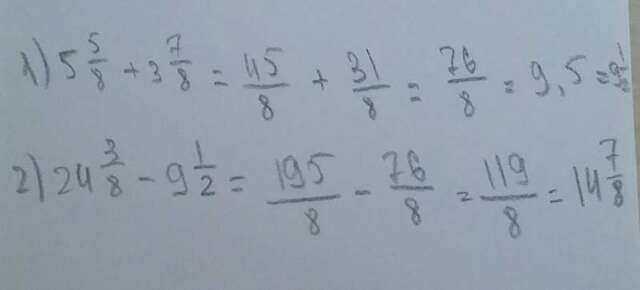 1) 5 5/8 + 3 7/8 = 45/8 + 31/8 = 76/8 = 9,5 = 9 1/2
2) 24 3/8 - 9 1/2 = 195/8 - 76/8 = 119/8 = 14 7/8